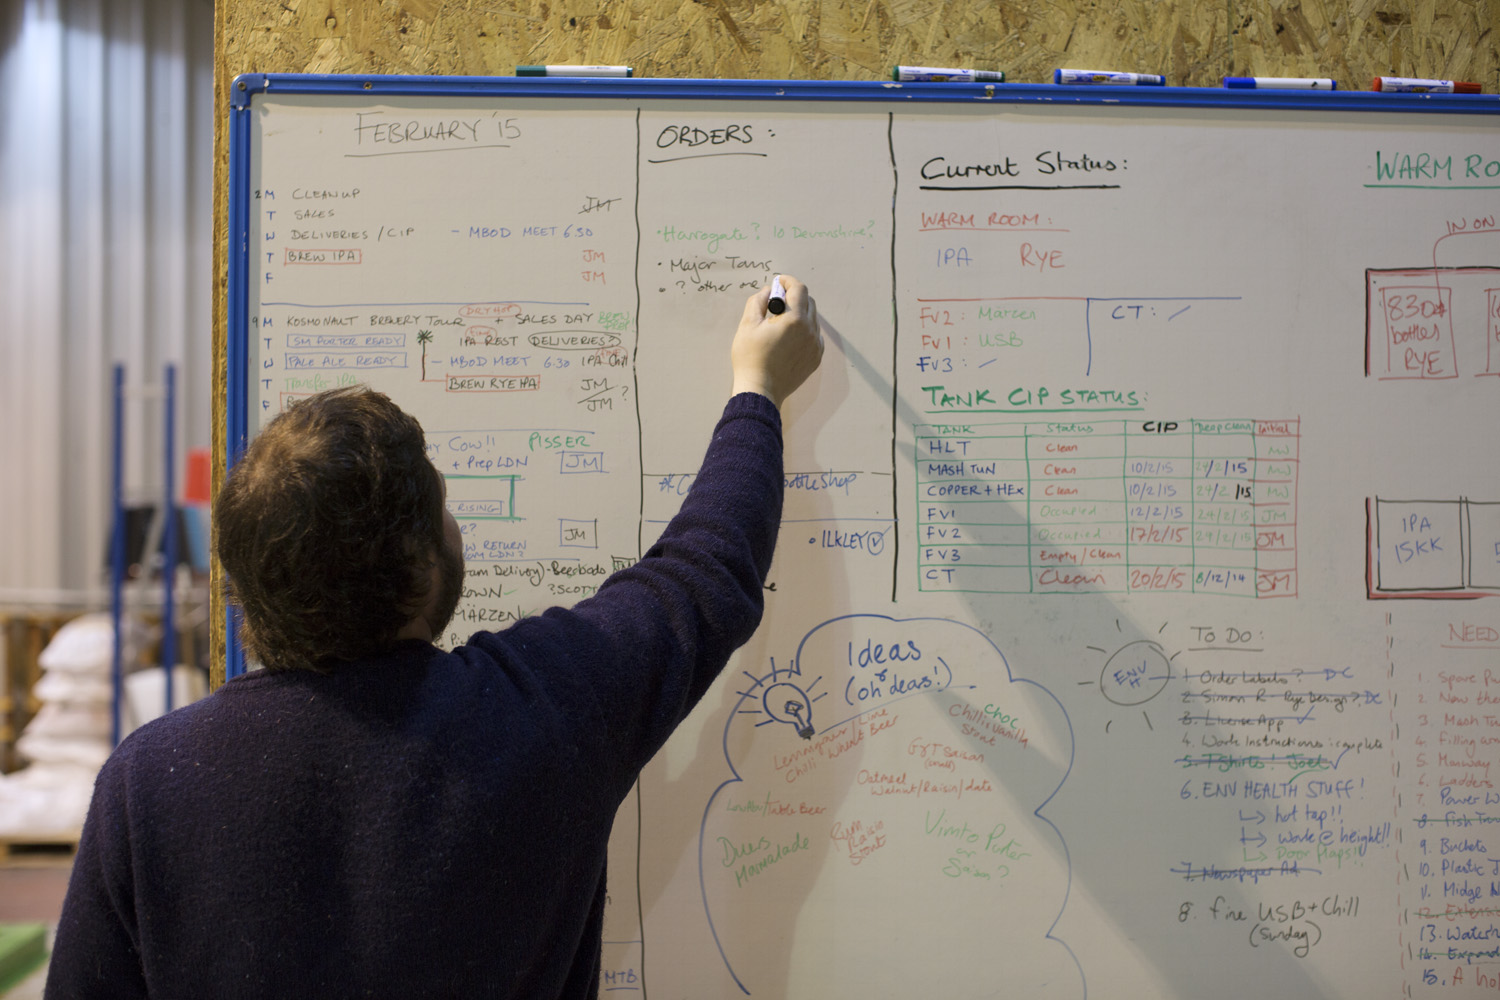 FEBRUARY '15
2 M CLEAN UP
T SALES JM
W DELIVERIES / CIP - MBOD MEET 6.30
T BREW IPA JM
F JM
DRY HOP
9 M KOSMONAUT BREWERY TOUR + SALES DAY
T SM PORTER READY IPA REST DELIVERIES?
W PALE ALE READY - MBOD MEET 6.30 IPA Chill
T Transfer IPA BREW RYE IPA JM
F JM ?
COW!! PISSER
+ Prep LDN JM
RISING
JM
RETURN
FROM LDN?
Delivery) - Beerbods JM
MÄRZEN
MTB
ORDERS:
• Harrogate? 10 Devonshire?
• Major Toms
• ? other one!
bottle shop
• ILKLEY
Ideas
(oh dear!)
or
Lemongrass/Lime
Chilli Wheat Beer
Choc
Chilli vanilla
Stout
G&T Saison
Oatmeal
Walnut/Raisin/date
Table Beer
Duers
Marmalade
Rum
Raisin
Stout
Vimto Porter
or
Saison?
Current Status:
WARM ROOM:
IPA RYE
FV2: Märzen
FV1: USB
FV3: /
CT: /
TANK CIP STATUS:
TANK Status CIP Deep Clean Initial
HLT Clean MW
MASH TUN Clean 10/2/15 24/2/15 MW
COPPER + HEx Clean 10/2/15 24/2/15 MW
FV1 Occupied 12/2/15 24/2/15 JM
FV2 Occupied 17/2/15 24/2/15 JM
FV3 Empty/Clean
CT Clean 20/2/15 8/12/14 JM
ENV
H
TO DO:
1. Order Labels? DC
2. Simon R - Rye Design? DC
3. License App
4. Work Instructions: complete
5. T Shirts! Joel
6. ENV HEALTH STUFF!
hot tap!!
work @ height!!
Door flaps!!
7. Newspaper Ad
8. fine USB + Chill
(Sunday)
WARM RO
IN ON
830
bottles
RYE
IPA
15KK
NEED
1. Spare
2. New
3. Mash
4. Filling
5. Manway
6. Ladders
7. Power
8. Fish
9. Buckets
10. Plastic
11. Midge
12.
13.
14.
15. A